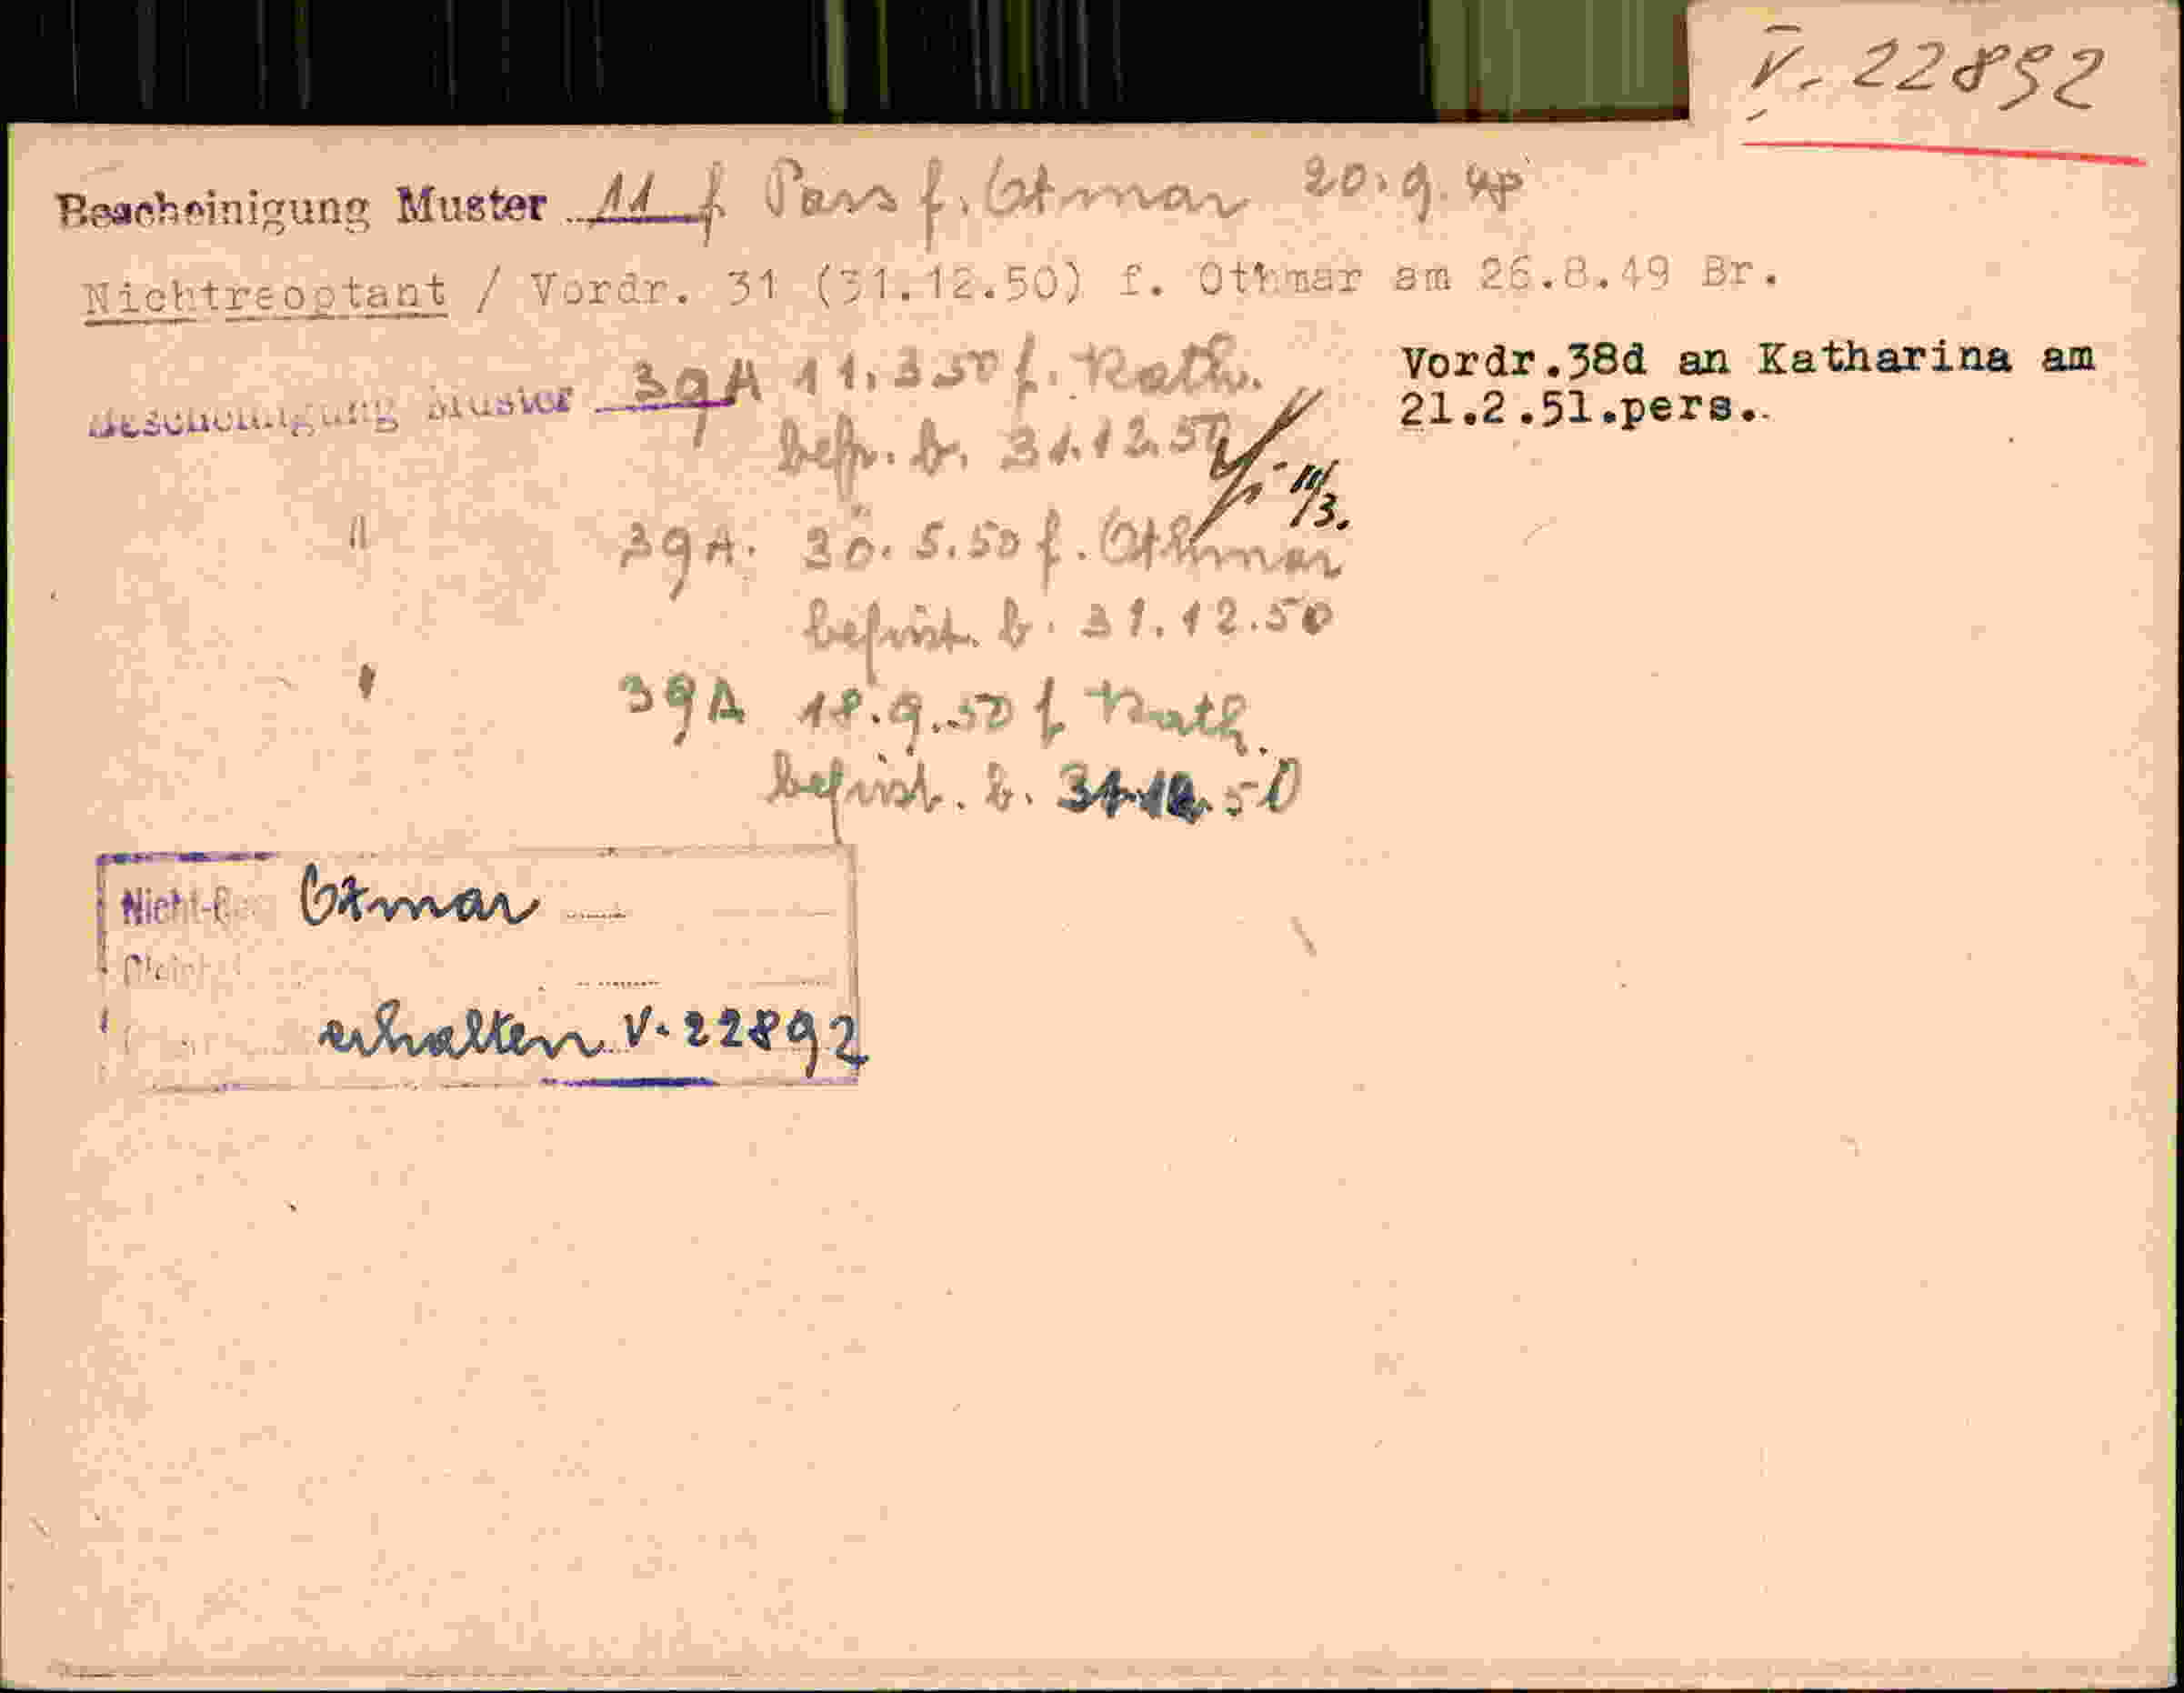 V. 22892
Bescheinigung Muster 11 f Pass f. Otmar 20.9.48
Nichtreoptant / Vordr. 31 (31.12.50) f. Othmar am 26.8.49 Br.
Bescheinigung Muster 39A 11.3.50 f. Kath.
Vordr.38d an Katharina am
21.2.51.pers..
befr. b. 31.12.50
11/3.
" 39A. 30.5.50 f. Othmar
befrist. b. 31.12.50
" 39A 18.9.50 f Kath.
befrist. b. 31.12.50
Nicht- Otmar
erhalten V. 22892